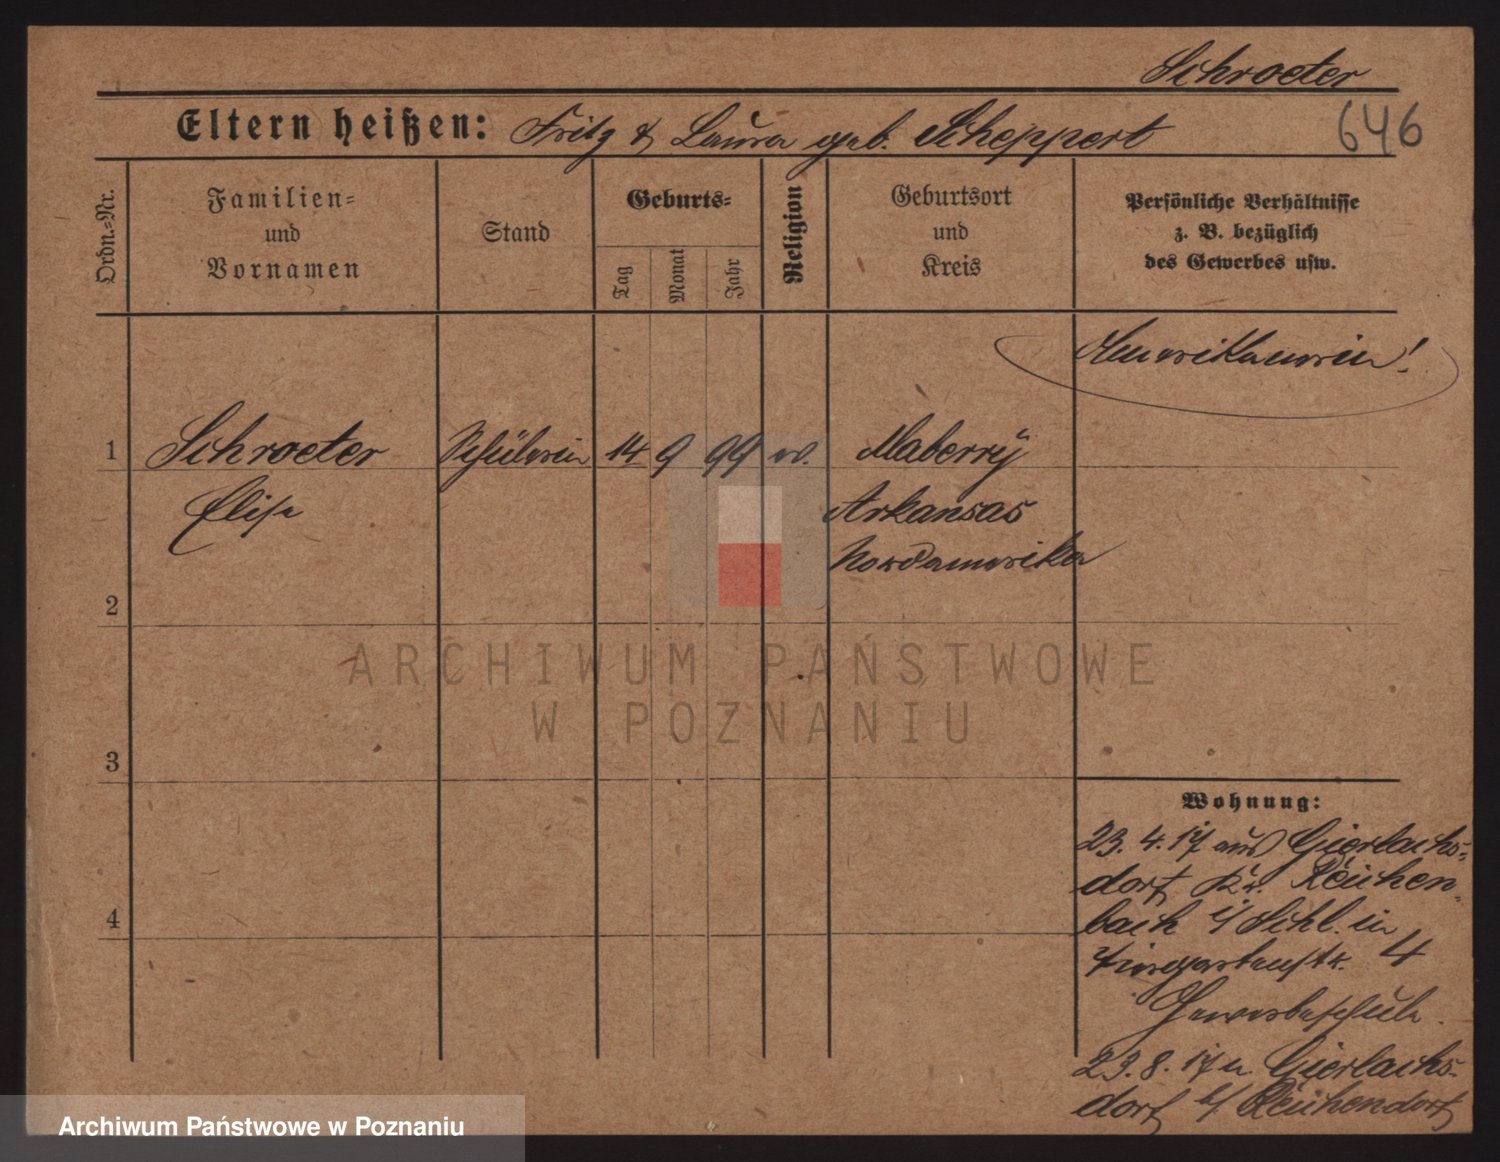 Schroeter
646
Eltern heißen: Fritz & Laura geb. Scheppert
Ordn.-Nr.
Familien-
und
Vornamen
Stand
Geburts-
Tag
Monat
Jahr
Religion
Geburtsort
und
Kreis
Persönliche Verhältnisse
z. B. bezüglich
des Gewerbes usw.
Amerikanerin!
1 Schroeter Schülerin 14 9 99 ev. Maberry
Elise Arkansas
Nordamerika
2
ARCHIWUM PAŃSTWOWE
W POZNANIU
3
Wohnung:
23. 4. 17 aus Gierlachs-
dorf Kr. Reichen-
4
bach i/ Schl. in
Tiergartenstr. 4
Gewerbeschule.
23. 8. 17 n. Gierlachs-
dorf b/ Reichendorf
Archiwum Państwowe w Poznaniu